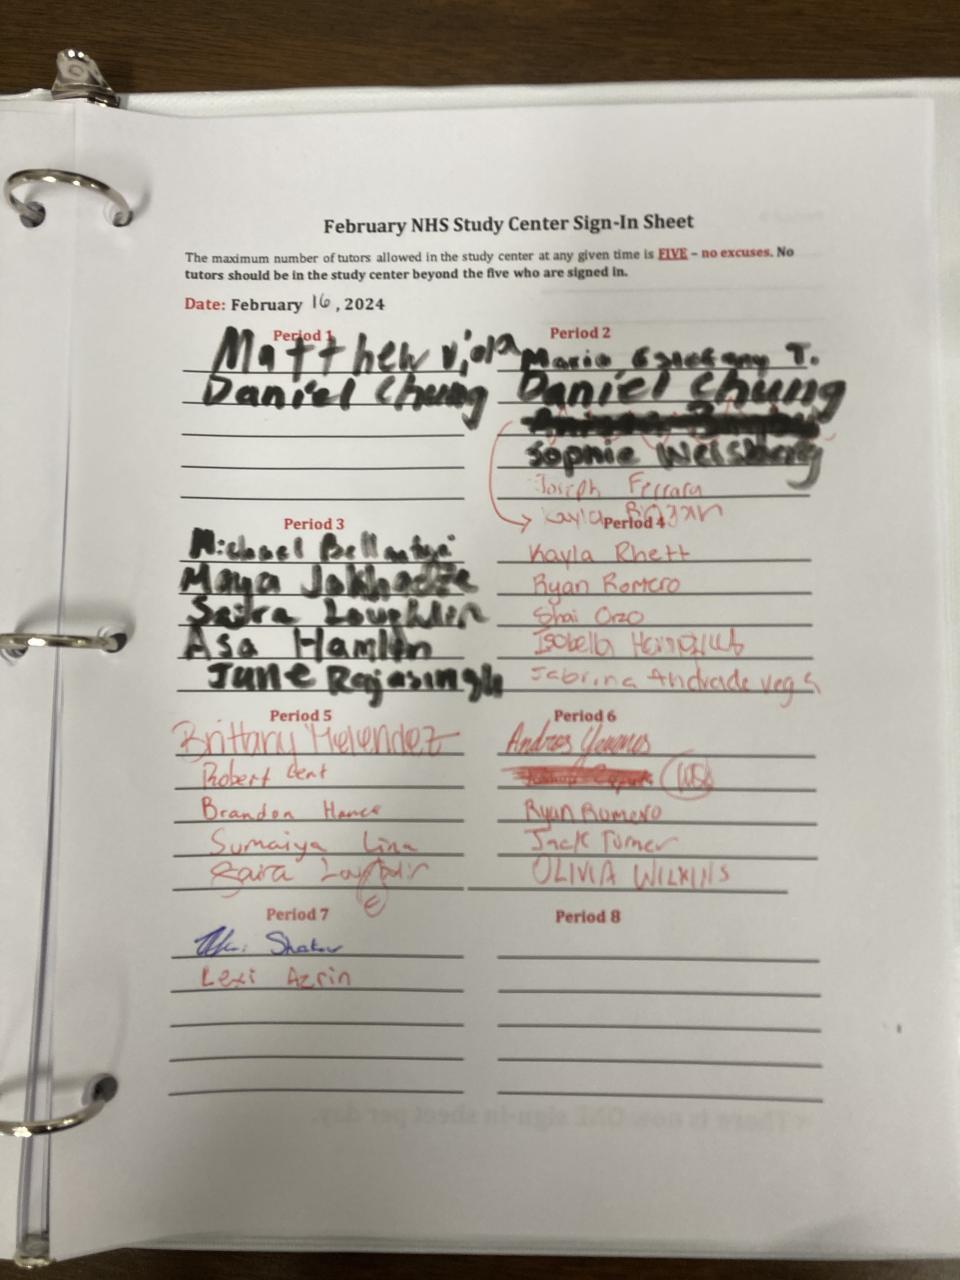 February NHS Study Center Sign-In Sheet
The maximum number of tutors allowed in the study center at any given time is FIVE – no excuses. No
tutors should be in the study center beyond the five who are signed in.
Date: February 16, 2024
Period 1
Matthew Viola
Daniel Chung
Period 2
Maria T.
Daniel Chung
Sophie Weisberg
Joseph Ferrara
Kayla
Period 3
Michael
Maya
Saira Loughlin
Asa Hamlin
June Rajasingh
Period 4
Kayla Rhett
Ryan Romero
Shai Orzo
Isobella
Sabrina Andrade Vega
Period 5
Brittany Melendez
Robert Gent
Brandon Hance
Sumaiya Lina
Saira
Period 6
Andres
Ryan Romero
Jack Turner
OLIVIA WILKINS
Period 7
Lexi Azrin
Period 8